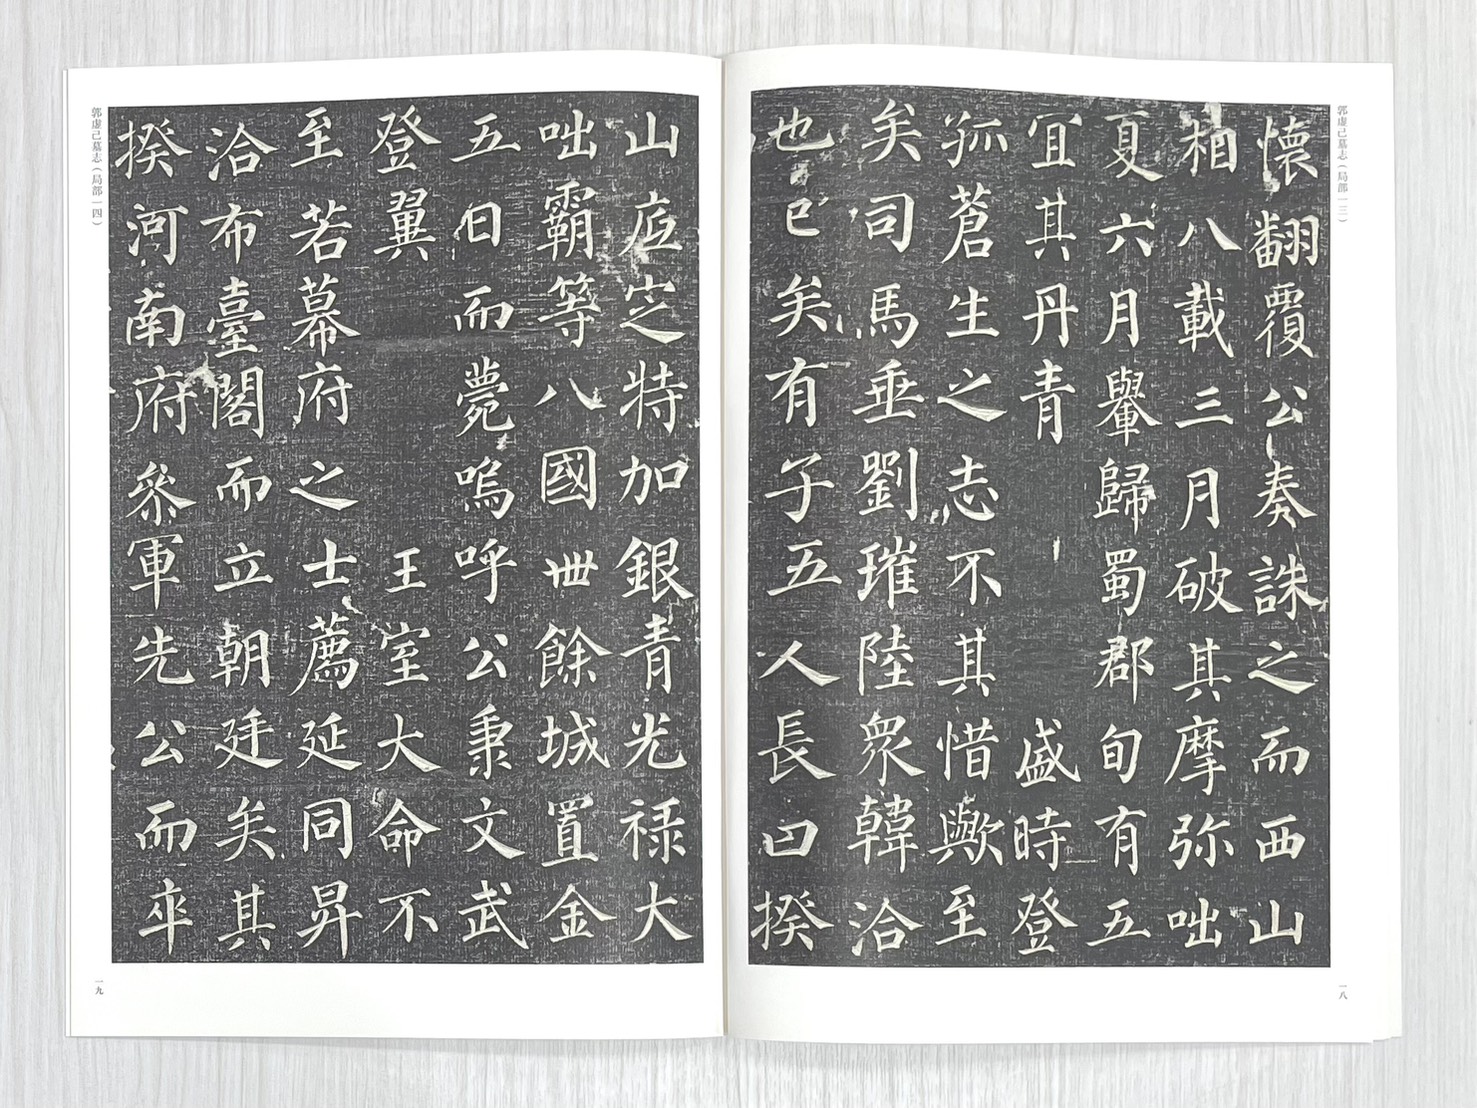 郭虚己墓志（局部一三）
懷翻覆公奏誅之而西山
相八載三月破其摩弥咄
夏六月轝歸蜀郡旬有五
宜其丹青 盛時登
孤蒼生之志不其惜歟至
矣司馬垂劉璀陸衆韓洽
也已矣有子五人長曰揆
一八
山庭㝎特加銀青光禄大
咄霸等八國卌餘城置金
五日而薨嗚呼公秉文武
登翼 王室大命不
至若幕府之士薦延同昇
洽布臺閣而立朝廷矣其
揆河南府叅軍先公而卒
郭虚己墓志（局部一四）
一九